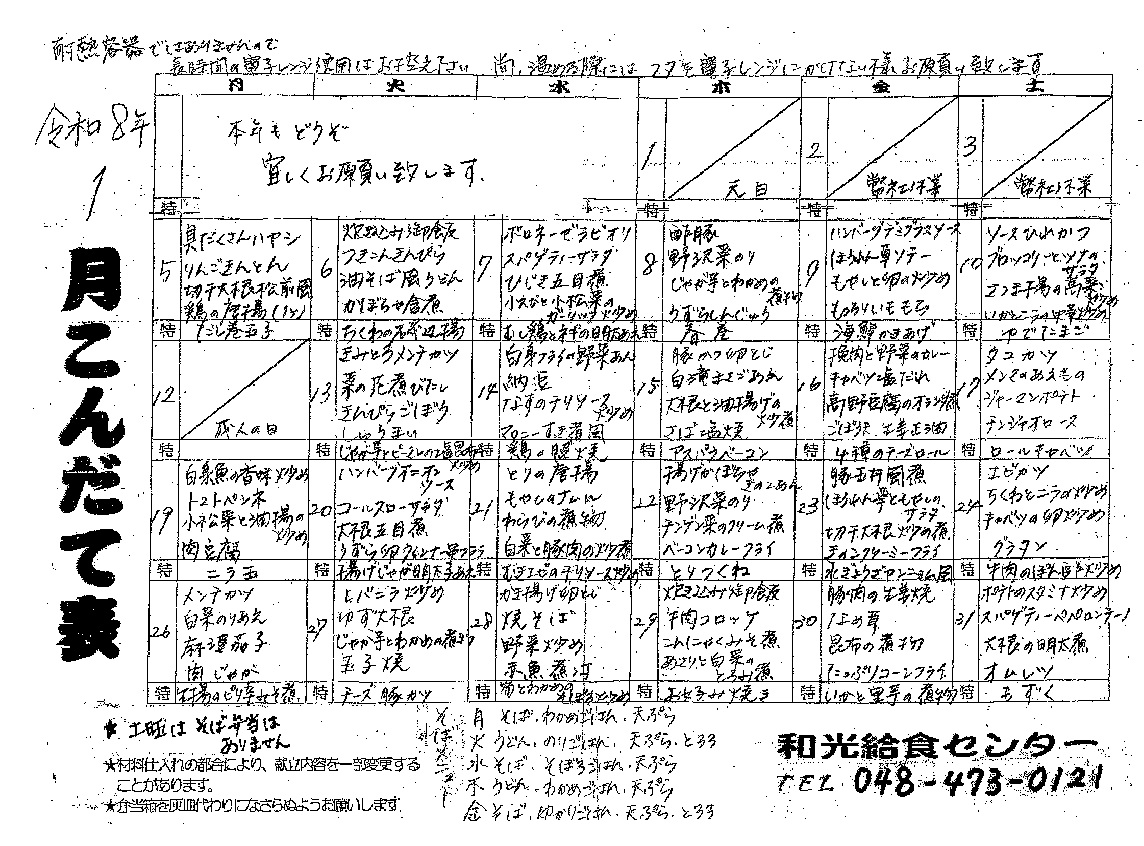 耐熱容器ではありませんので
長時間の電子レンジ使用はお控え下さい 尚、温める際にはフタを電子レンジにかけない様お願い致します
令和8年
1
月こんだて表
月 火 水 木 金 土
本年もどうぞ
宜しくお願い致します。
1 元日
2 弊社休業
3 弊社休業
特 特 特 特
5
具だくさんハヤシ
りんごきんとん
切干大根松前風
鶏の唐揚(1ヶ)
特 だし巻玉子
6
炊込み御飯
つきこんきんぴら
油そば風うどん
かぼちゃ含煮
特 ちくわの石垣揚
7
ボロネーゼラビオリ
スパゲティーサラダ
ひじき五目煮
小えびと小松菜の
ガーリック炒め
特 むし鶏とネギの
8
野沢菜のり
じゃが芋とわかめの
煮物
特 春巻
9
ハンバーグデミグラスソース
ほうれん草ソテー
もやしと卵の炒め
特 海鮮かきあげ
10
ソースひれかつ
ブロッコリーとツナの
サラダ
特 ゆでたまご
12 成人の日
特
13
メンチカツ
菜の花煮びたし
きんぴらごぼう
しゅうまい
特
14
白身フライの野菜あん
納豆
なすのチリソース
炒め
マロニーすき煮風
特
15
豚かつ卵とじ
大根と油揚げの
炒煮
さば塩焼
特 アスパラベーコン
16
挽肉と野菜のカレー
キャベツ塩だれ
特 4種のチーズロール
17
タコカツ
メンマのあえもの
ジャーマンポテト
チンジャオロース
特 ロールキャベツ
19
白糸魚の香味炒め
トマトペンネ
小松菜と油揚の
炒め
肉豆腐
特 ニラ玉
20
ハンバーグオニオン
ソース
コールスローサラダ
大根五目煮
特 揚げじゃが明太子あえ
21
とりの唐揚
もやしのナムル
わらびの煮物
白菜と豚肉の炒煮
特 むきエビのチリソース炒め
22
揚げかぼちゃ
きのこあん
野沢菜のり
チンゲン菜のクリーム煮
ベーコンカレーフライ
特 とりつくね
23
ほうれん草ともやしの
サラダ
切干大根炒め煮
特
24
エビカツ
ちくわとニラの炒め
キャベツの卵炒め
グラタン
特 牛肉のごぼう炒め
26
メンチカツ
白菜のりあえ
麻婆茄子
肉じゃが
特
27
とバニラ炒め
ゆず大根
じゃが芋とわかめの煮物
玉子焼
特 チーズ豚かつ
28
かき揚げ卵とじ
焼そば
野菜炒め
赤魚煮付
特
29
炊き込み御飯
牛肉コロッケ
こんにゃくみそ煮
あさりと白菜の
とろみ煮
特 お好み焼き
30
豚肉の生姜焼
昆布の煮物
たっぷりコーンフライ
特 いかと里芋の煮物
31
ポテトのスタミナ炒め
スパゲティーペペロンチーノ
大根の明太煮
オムレツ
特 もずく
★土曜はそば弁当は
ありません
★材料仕入れの都合により、献立内容を一部変更する
ことがあります。
★弁当箱を灰皿代わりになさらぬようお願いします。
月 そば、わかめごはん、天ぷら
火 うどん、のりごはん、天ぷら、とろろ
水 そば、そぼろごはん、天ぷら
木 うどん、わかめごはん、天ぷら
金 そば、ゆかりごはん、天ぷら、とろろ
和光給食センター
TEL 048-473-0121